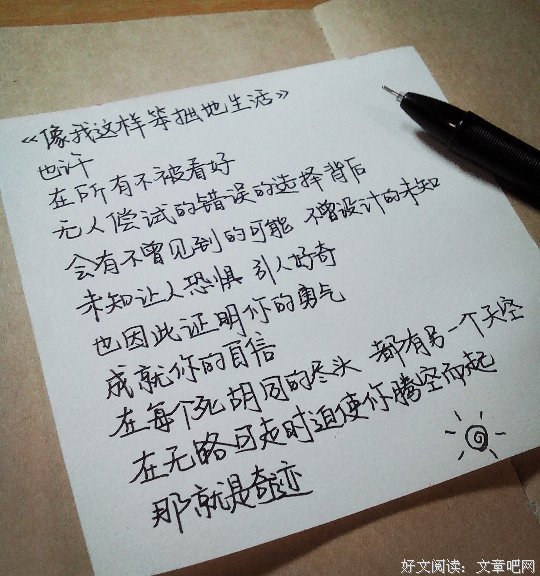 《像我这样笨拙地生活》
也许
在所有不被看好
无人尝试的错误的选择背后
会有不曾见到的可能 不曾设计的未知
未知让人恐惧 引人好奇
也因此证明你的勇气
成就你的自信
在每个死胡同的尽头 都有另一个天空
在无路可走时迫使你腾空而起
那就是奇迹
好文阅读：文章吧网